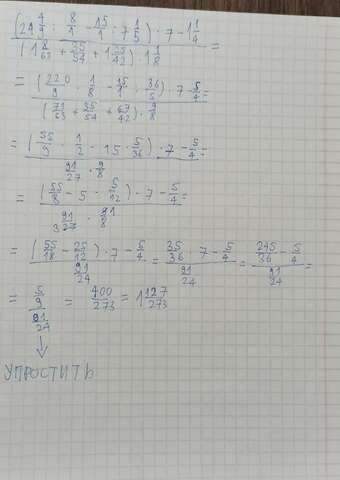 (24 4/9 : 8/1 - 15/1 : 7 1/5) · 7 - 1 1/4
(1 8/63 + 55/54 + 1 25/42) · 1 1/8 =
= (220/9 · 1/8 - 15/1 : 36/5) · 7 - 5/4 =
(71/63 + 55/54 + 67/42) · 9/8
= (55/9 · 1/2 - 15 · 5/36) · 7 - 5/4 =
91/27 · 9/8
= (55/8 - 5 · 5/12) · 7 - 5/4 =
91/27 · 91/8
= (55/18 - 25/12) · 7 - 5/4 = 35/36 · 7 - 5/4 = 245/36 - 5/4 =
91/24 91/24 91/24
= 5/9 = 400/273 = 1 127/273
91/24
УПРОСТИТЬ